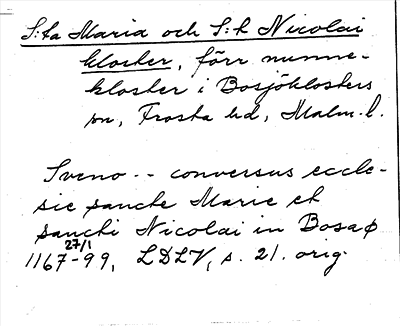 S:ta Maria och S:t Nicolai
kloster, förr nunne-
kloster i Bosjöklosters
sn, Frosta hd, Malm. l.
Sveno -- conversus eccle-
sie sancte Marie et
sancti Nicolai in Bosaø
27/1
1167-99, LDLV, s. 21. orig.